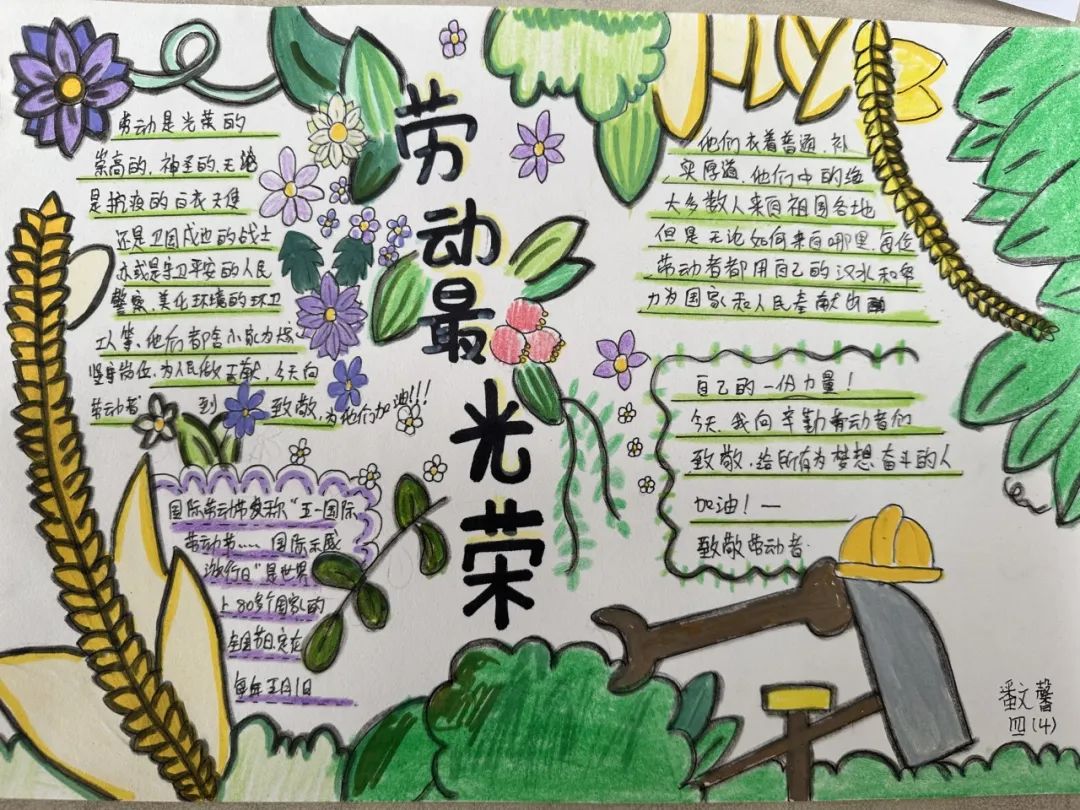 劳动最光荣
劳动是光荣的
崇高的，神圣的，无论
是抗疫的白衣天使
还是卫国戍边的战士
亦或是守卫平安的人民
警察，美化环境的环卫
工人等，他们都舍小家为大家
坚守岗位，为人民做贡献，今天向
劳动者 到 致敬，为他们加油!!!
国际劳动节又称“五一国际
劳动节…… 国际示威
游行日”是世界
上80多个国家的
全国节日，定在
每年五月1日
他们衣着普通，朴
实厚道，他们中的绝
大多数人来自祖国各地
但是无论如何来自哪里，每位
劳动者都用自己的汉水和努
力为国家和人民奉献出
自己的一份力量！
今天，我向辛勤劳动者们
致敬，给所有为梦想奋斗的人
加油！一
致敬劳动者.
番文馨
四(4)